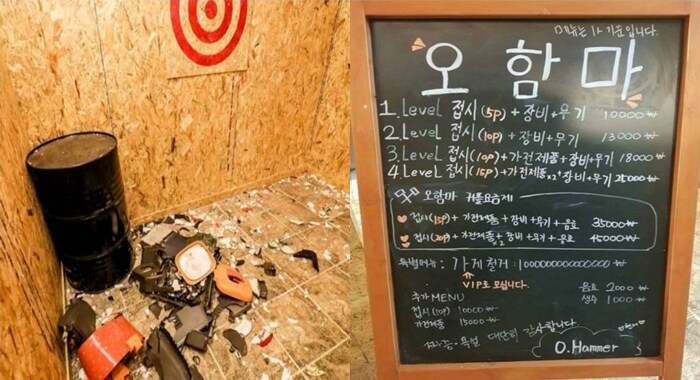 메뉴는 1人 기준입니다.
오함마
1. Level 접시(5p) + 장비 + 무기 10000₩
2. Level 접시(10p) + 장비 + 무기 13000₩
3. Level 접시(10p) + 가전제품 + 장비 + 무기 18000₩
4. Level 접시(15p) + 가전제품×2 + 장비 + 무기 25000₩
오함마 커플요금제
접시(15p) + 가전제품 + 장비 + 무기 + 음료 35000₩
접시(20p) + 가전제품×2 + 장비 + 무기 + 음료 45000₩
특별메뉴 : 가게철거 : 1000000000000000₩
VIP로 모십니다.
추가 MENU
접시(10p) 10000₩
가전제품 15000₩
음료 2000₩
생수 1000₩
욕설 대단히 감사합니다.
O.Hammer